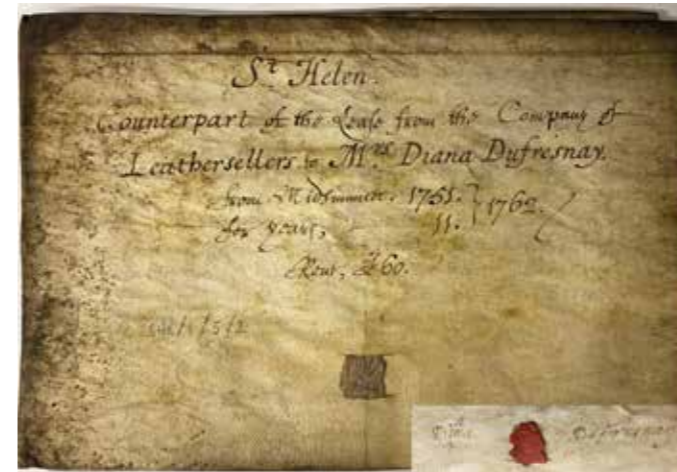 St Helen.
Counterpart of the Lease from the Company of
Leathersellers to Mrs Diana Dufresnay.
from Midsummer. 1751. } 1762.
for years, 11.
Rent, £60.
Dufresnay